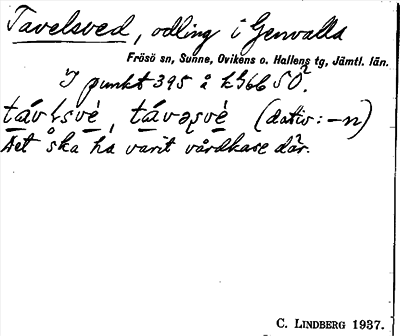 Tavelsved, odling i Genvalla
Frösö sn, Sunne, Ovikens o. Hallens tg, Jämtl. län.
I punkt 395 å
(dativ: -n)
Det ska ha varit vårdkase där.
C. LINDBERG 1937.